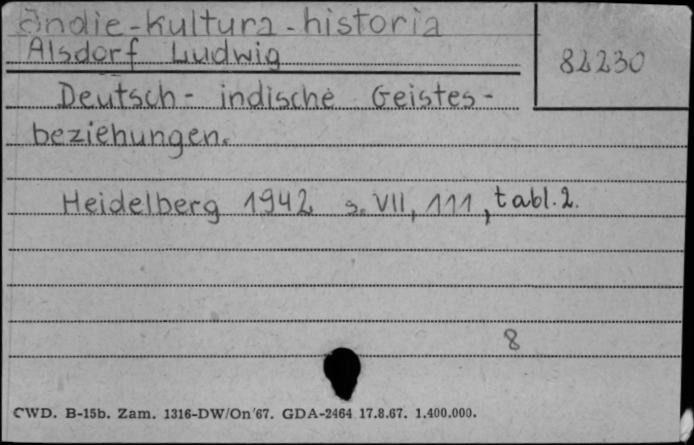 Indie-kultura-historia
Alsdorf Ludwig
82230
Deutsch - indische Geistes-
beziehungen.
Heidelberg 1942 s. VII, 111, tabl. 2.
8
CWD. B-15b. Zam. 1316-DW/On/67. GDA-2464 17.8.67. 1,400.000.